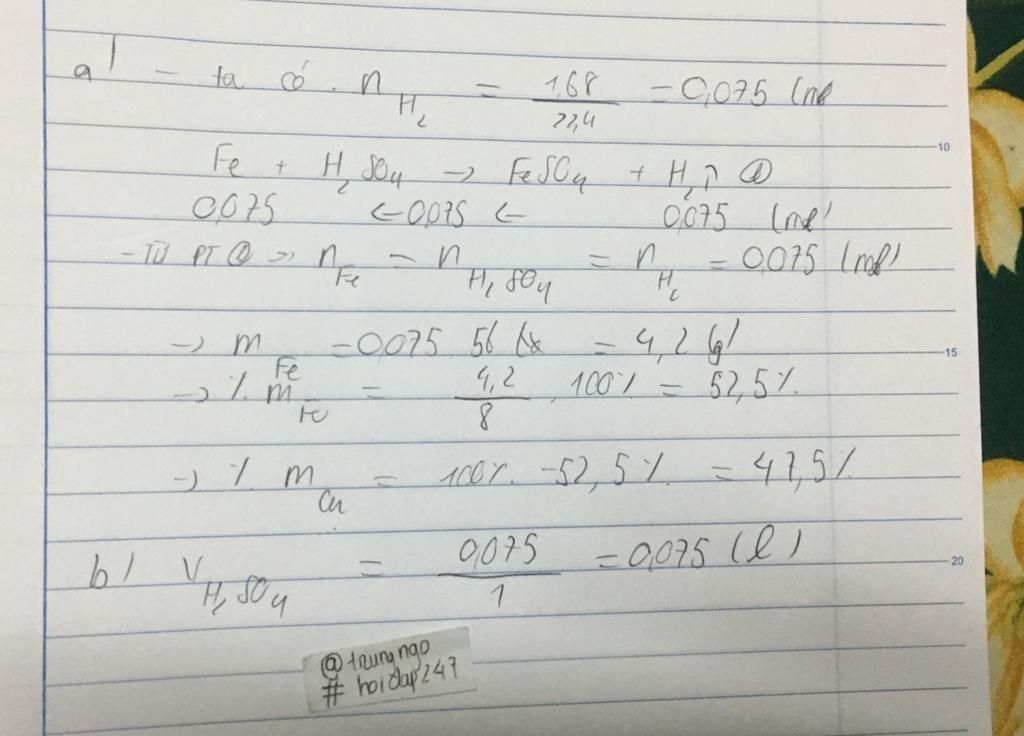 a) - ta có . n H₂ = 1,68 / 22,4 = 0,075 (mol
10
Fe + H₂SO₄ → FeSO₄ + H₂↑ ①
0,075 ← 0,075 ← 0,075 (mol)
- Từ PT ① => n Fe = n H₂SO₄ = n H₂ = 0,075 (mol)
→ m Fe = 0,075 56 = 4,2 (g)
15
→ % m Fe = 4,2 / 8 . 100% = 52,5%
→ % m Cu = 100% - 52,5% = 47,5%
b) V H₂SO₄ = 0,075 / 1 = 0,075 (l)
20
@trungngo
# hoidap247